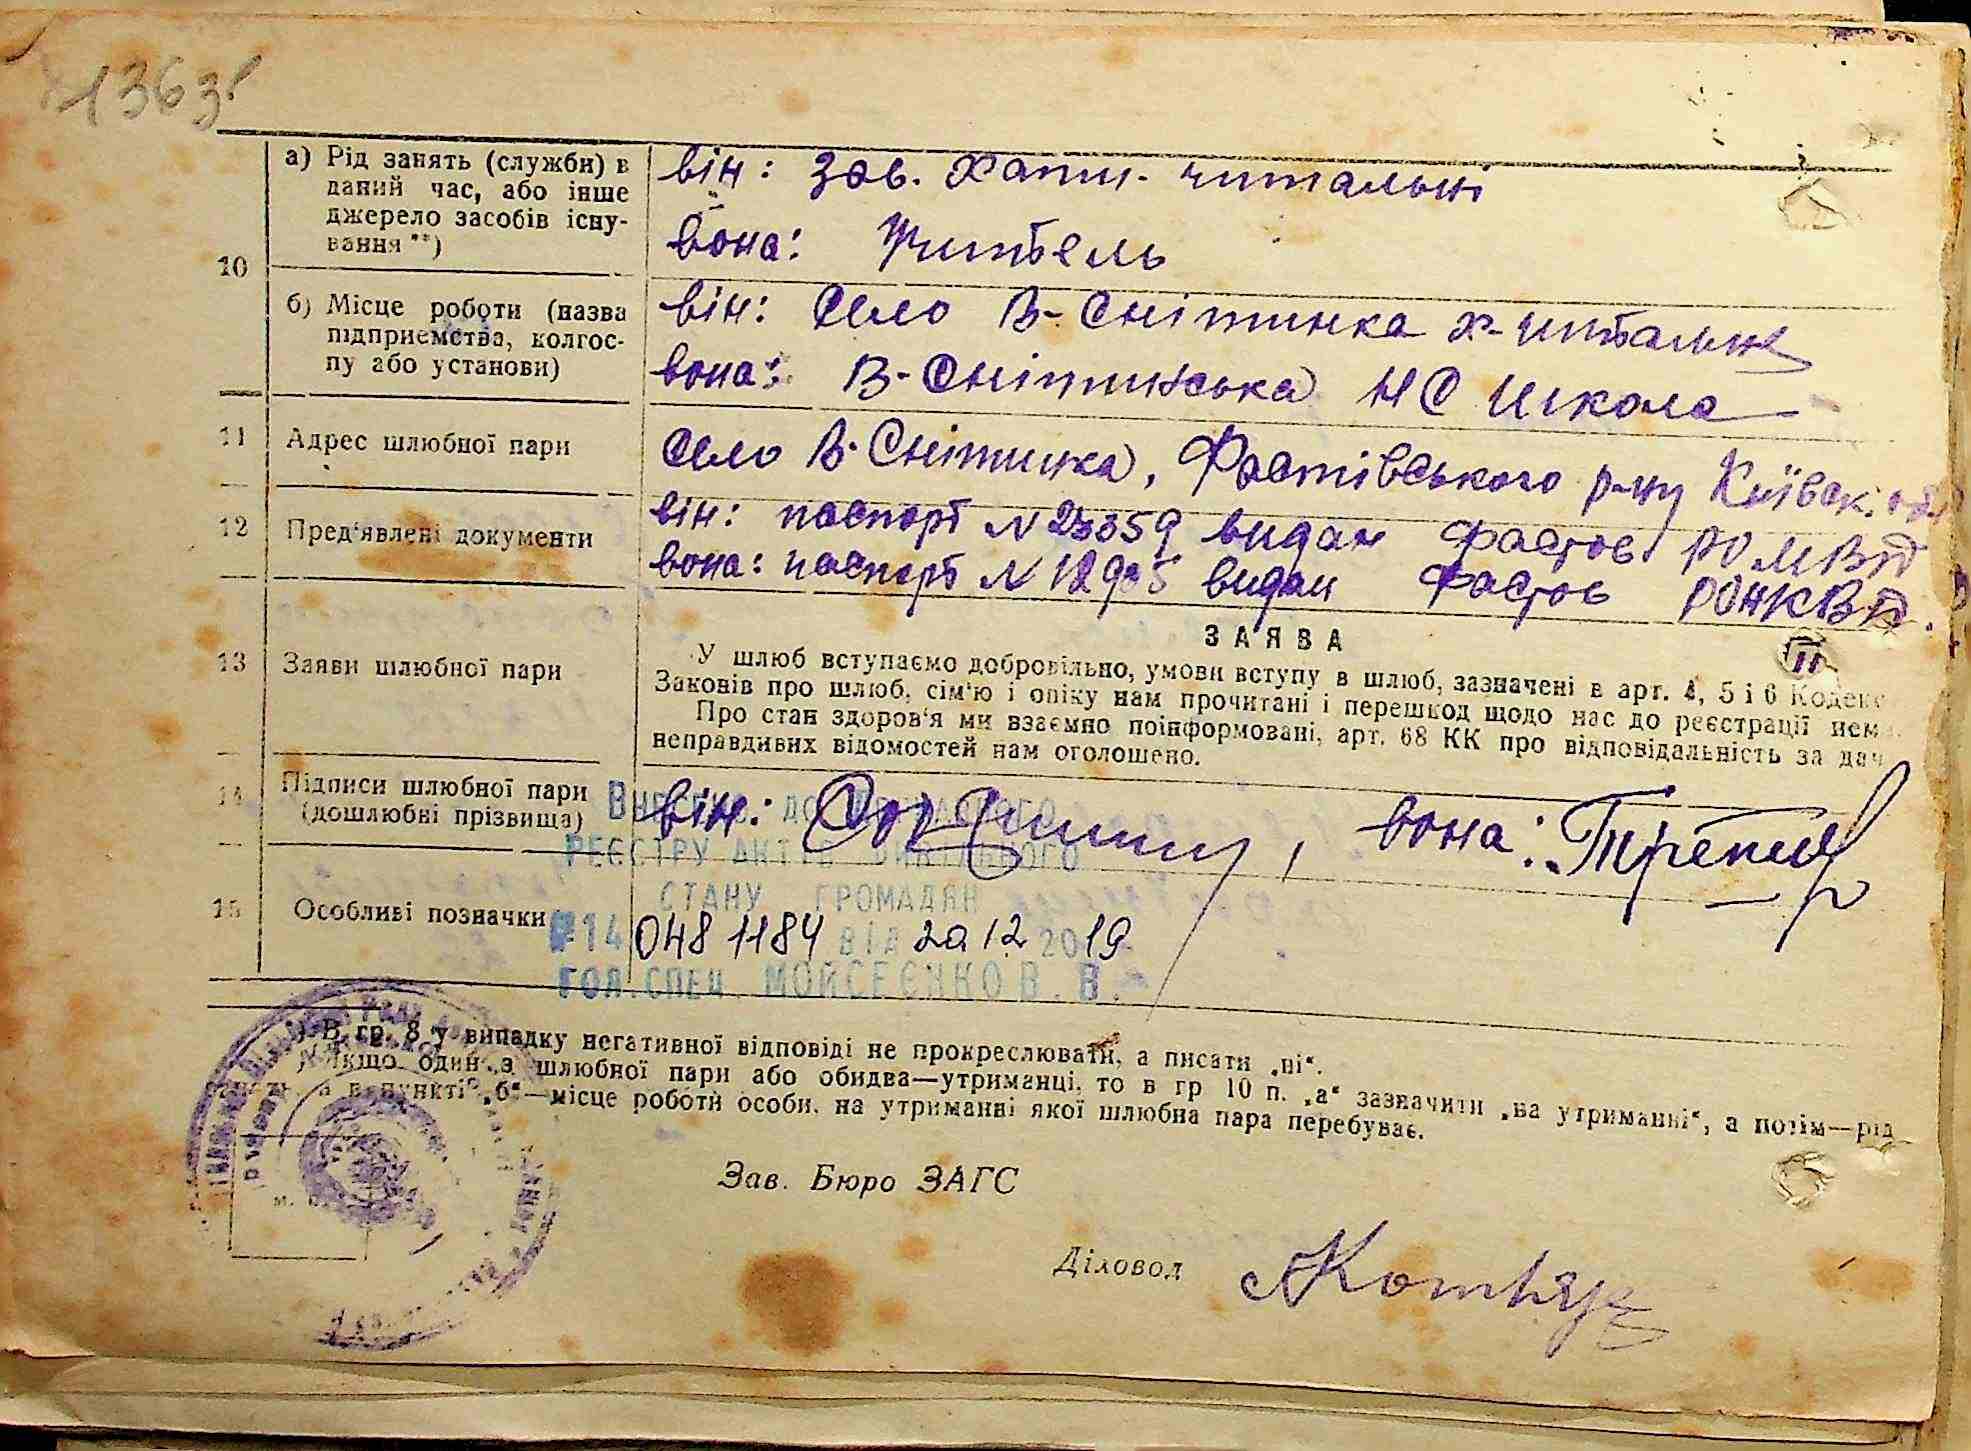 136зв
10
а) Рід занять (служби) в
даний час, або інше
джерело засобів існу-
вання **)
він: Зав. Хати-читальні
вона: Учитель
б) Місце роботи (назва
підприємства, колгос-
пу або установи)
він: Село В-Снітинка х-читальня
вона: В-Снітинська НС Школа
11
Адрес шлюбної пари
Село В-Снітинка, Фастівського р-ну Київськ. обл
12
Пред'явлені документи
він: паспорт N 23359 видан Фастов РОМВД
вона: паспорт N видан Фастов РОНКВД.
13
Заяви шлюбної пари
ЗАЯВА
У шлюб вступаємо добровільно, умови вступу в шлюб, зазначені в арт. 4, 5 і 6 Кодекс
Законів про шлюб, сім'ю і опіку нам прочитані і перешкод щодо нас до реєстрації нема.
Про стан здоров'я ми взаємно поінформовані, арт. 68 КК про відповідальність за дач
неправдивих відомостей нам оголошено.
14
Підписи шлюбної пари
(дошлюбні прізвища)
він: , вона:
15
Особливі позначки
Внесено до Державного
реєстру актів цивільного
стану громадян
№14 048 1184 від 20 12 2019
Гол. спец. Мойсеєнко В. В.
*) В гр. 8 у випадку негативної відповіді не прокреслювати, а писати „ні“.
Якщо один з шлюбної пари або обидва—утриманці, то в гр 10 п. „а“ зазначити „на утриманні“, а потім—рід
а в пункті „б“—місце роботи особи, на утриманні якої шлюбна пара перебуває.
м. п.
Зав. Бюро ЗАГС
Діловод